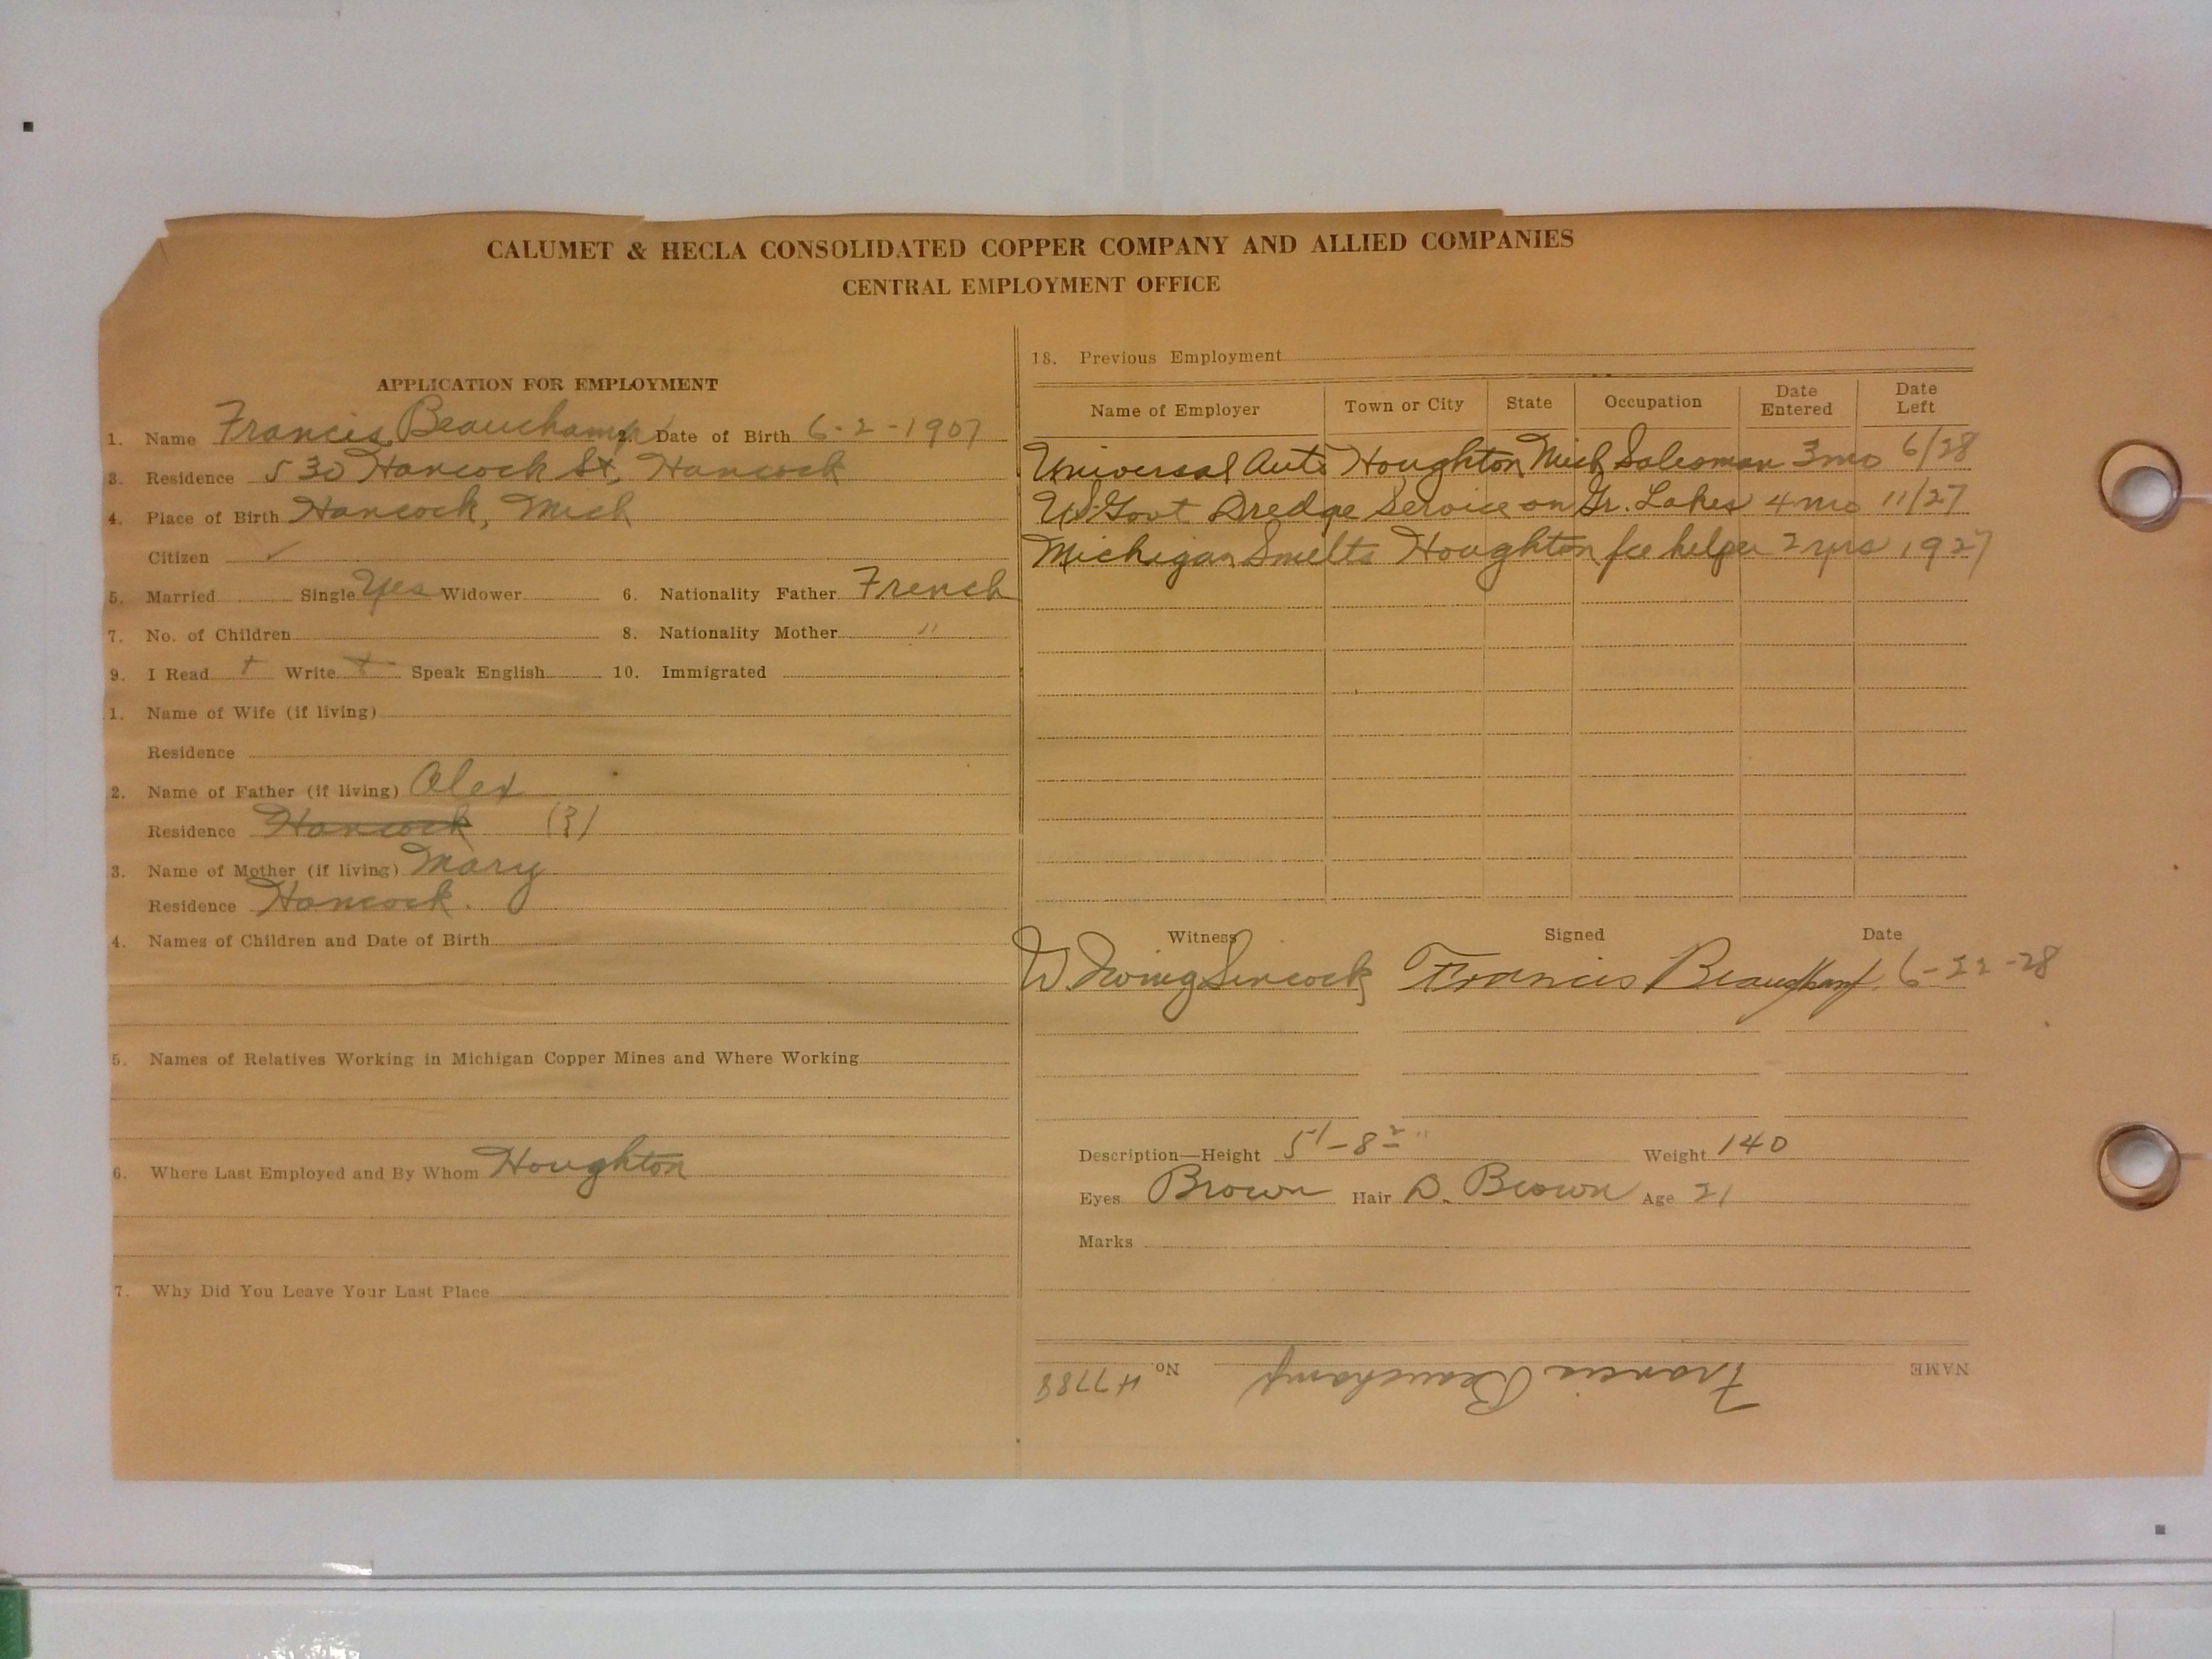 CALUMET & HECLA CONSOLIDATED COPPER COMPANY AND ALLIED COMPANIES
CENTRAL EMPLOYMENT OFFICE
APPLICATION FOR EMPLOYMENT
1. Name Francis Beauchamp 2. Date of Birth 6-2-1907
3. Residence 530 Hancock St, Hancock
4. Place of Birth Hancock, Mich
Citizen ✓
5. Married Single Yes Widower 6. Nationality Father French
7. No. of Children 8. Nationality Mother "
9. I Read + Write + Speak English 10. Immigrated
1. Name of Wife (if living)
Residence
2. Name of Father (if living) Alex
Residence Hancock (?)
3. Name of Mother (if living) Mary
Residence Hancock.
4. Names of Children and Date of Birth
5. Names of Relatives Working in Michigan Copper Mines and Where Working
6. Where Last Employed and By Whom Houghton
7. Why Did You Leave Your Last Place
18. Previous Employment
Name of Employer Town or City State Occupation Date Entered Date Left
Universal Auto Houghton Mich Salesman 3 mo 6/28
U.S. Govt Dredge Service on Gr. Lakes 4 mo 11/27
Michigan Smelts Houghton fce helper 2 yrs 1927
Witness Signed Date
W. Irving Sincock Francis Beauchamp 6-22-28
Description—Height 5'-8 Weight 140
Eyes Brown Hair D. Brown Age 21
Marks
NAME Francis Beauchamp No. 47788